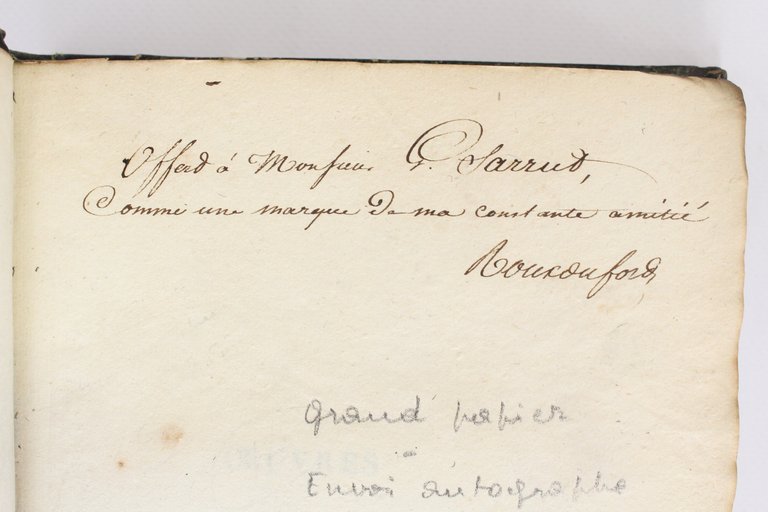 Offert à Monsieur G. Sarrut,
Comme une marque de ma constante amitié
Rouxdufort
grand papier
-
Envoi autographe